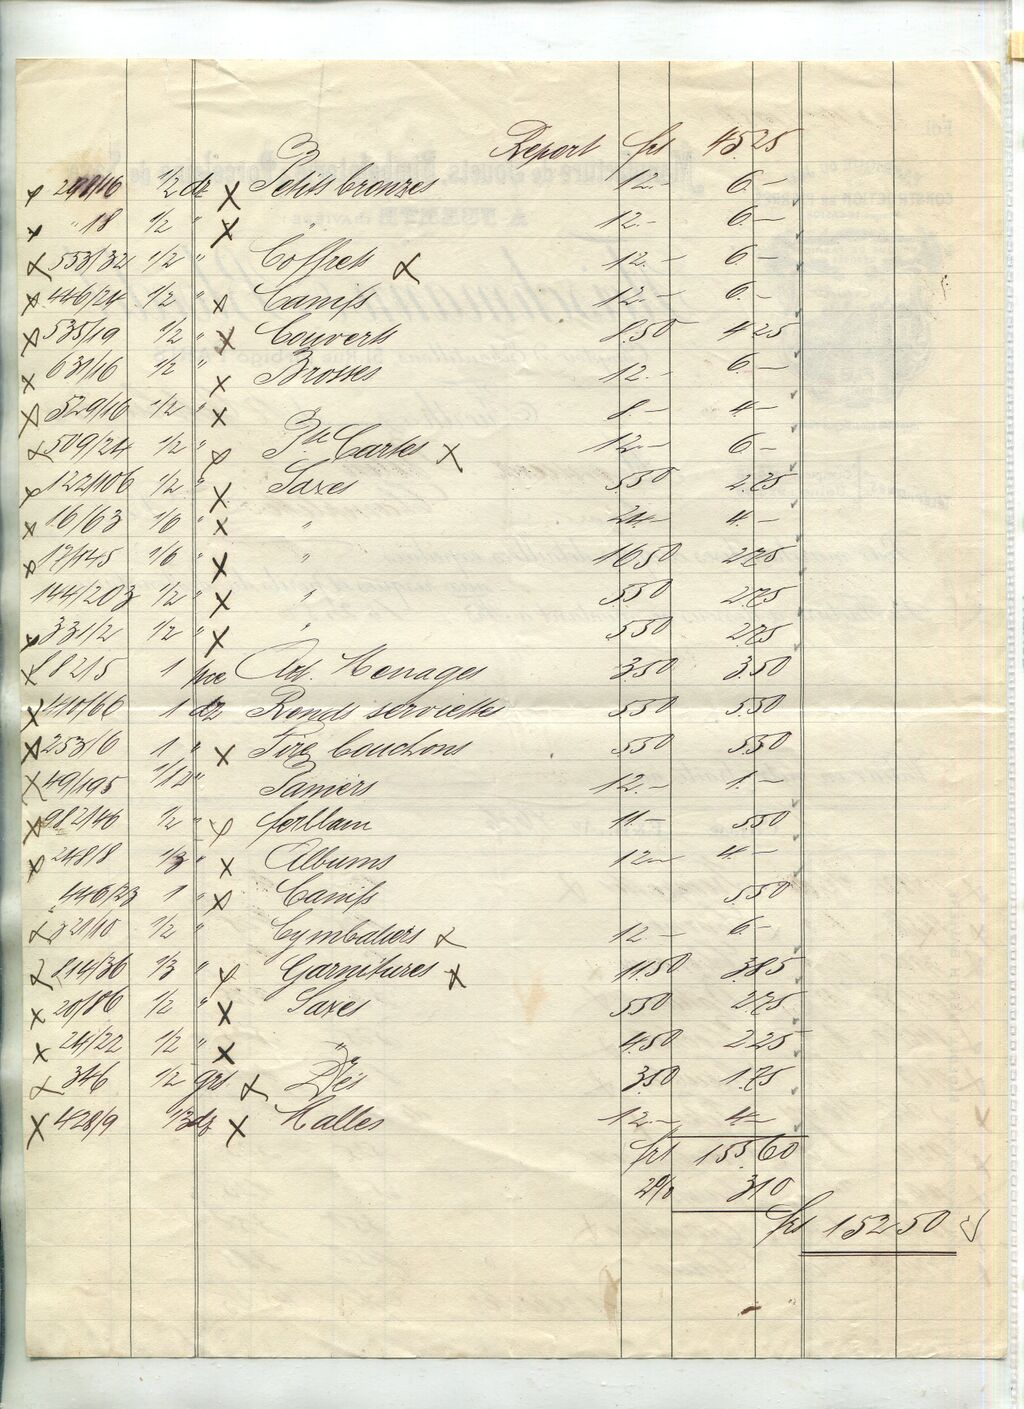 Report frs 45.25
16 1/2 dz Petits bronzes 12.- 6.-
" 18 1/2 " " 12.- 6.-
553/32 1/2 " Coffrets 12.- 6.-
446/24 1/2 " Canifs 12.- 6.-
535/19 1/2 " Couverts 8.50 4.25
631/16 1/2 " Brosses 12.- 6.-
529/16 1/2 " 8.- 4.-
509/24 1/2 " Pte Cartes 12.- 6.-
122/106 1/2 " Saxes 5.50 2.75
16/63 1/6 " " 24.- 4.-
17/145 1/6 " " 16.50 2.75
144/203 1/2 " " 5.50 2.75
331/2 1/2 " " 5.50 2.75
82/5 1 pce Art. Menages 3.50 3.50
410/60 1 dz Ronds serviettes 5.50 5.50
253/6 1 " Tire bouchons 5.50 5.50
49/195 1/12 " Paniers 12.- 1.-
982/46 1/2 " 11.- 5.50
248/8 1/3 " Albums 12.- 4.-
446/23 1 " Canifs 5.50
321/10 1/2 " Cymbaliers 12.- 6.-
814/36 1/3 " Garnitures 11.50 3.85
20/86 1/2 " Saxes 5.50 2.75
24/22 1/2 " " 4.50 2.25
346 1/2 grs Dés 3.50 1.75
428/9 1/3 dz Malles 12.- 4.-
frs 155.60
2% 3.10
frs 152.50